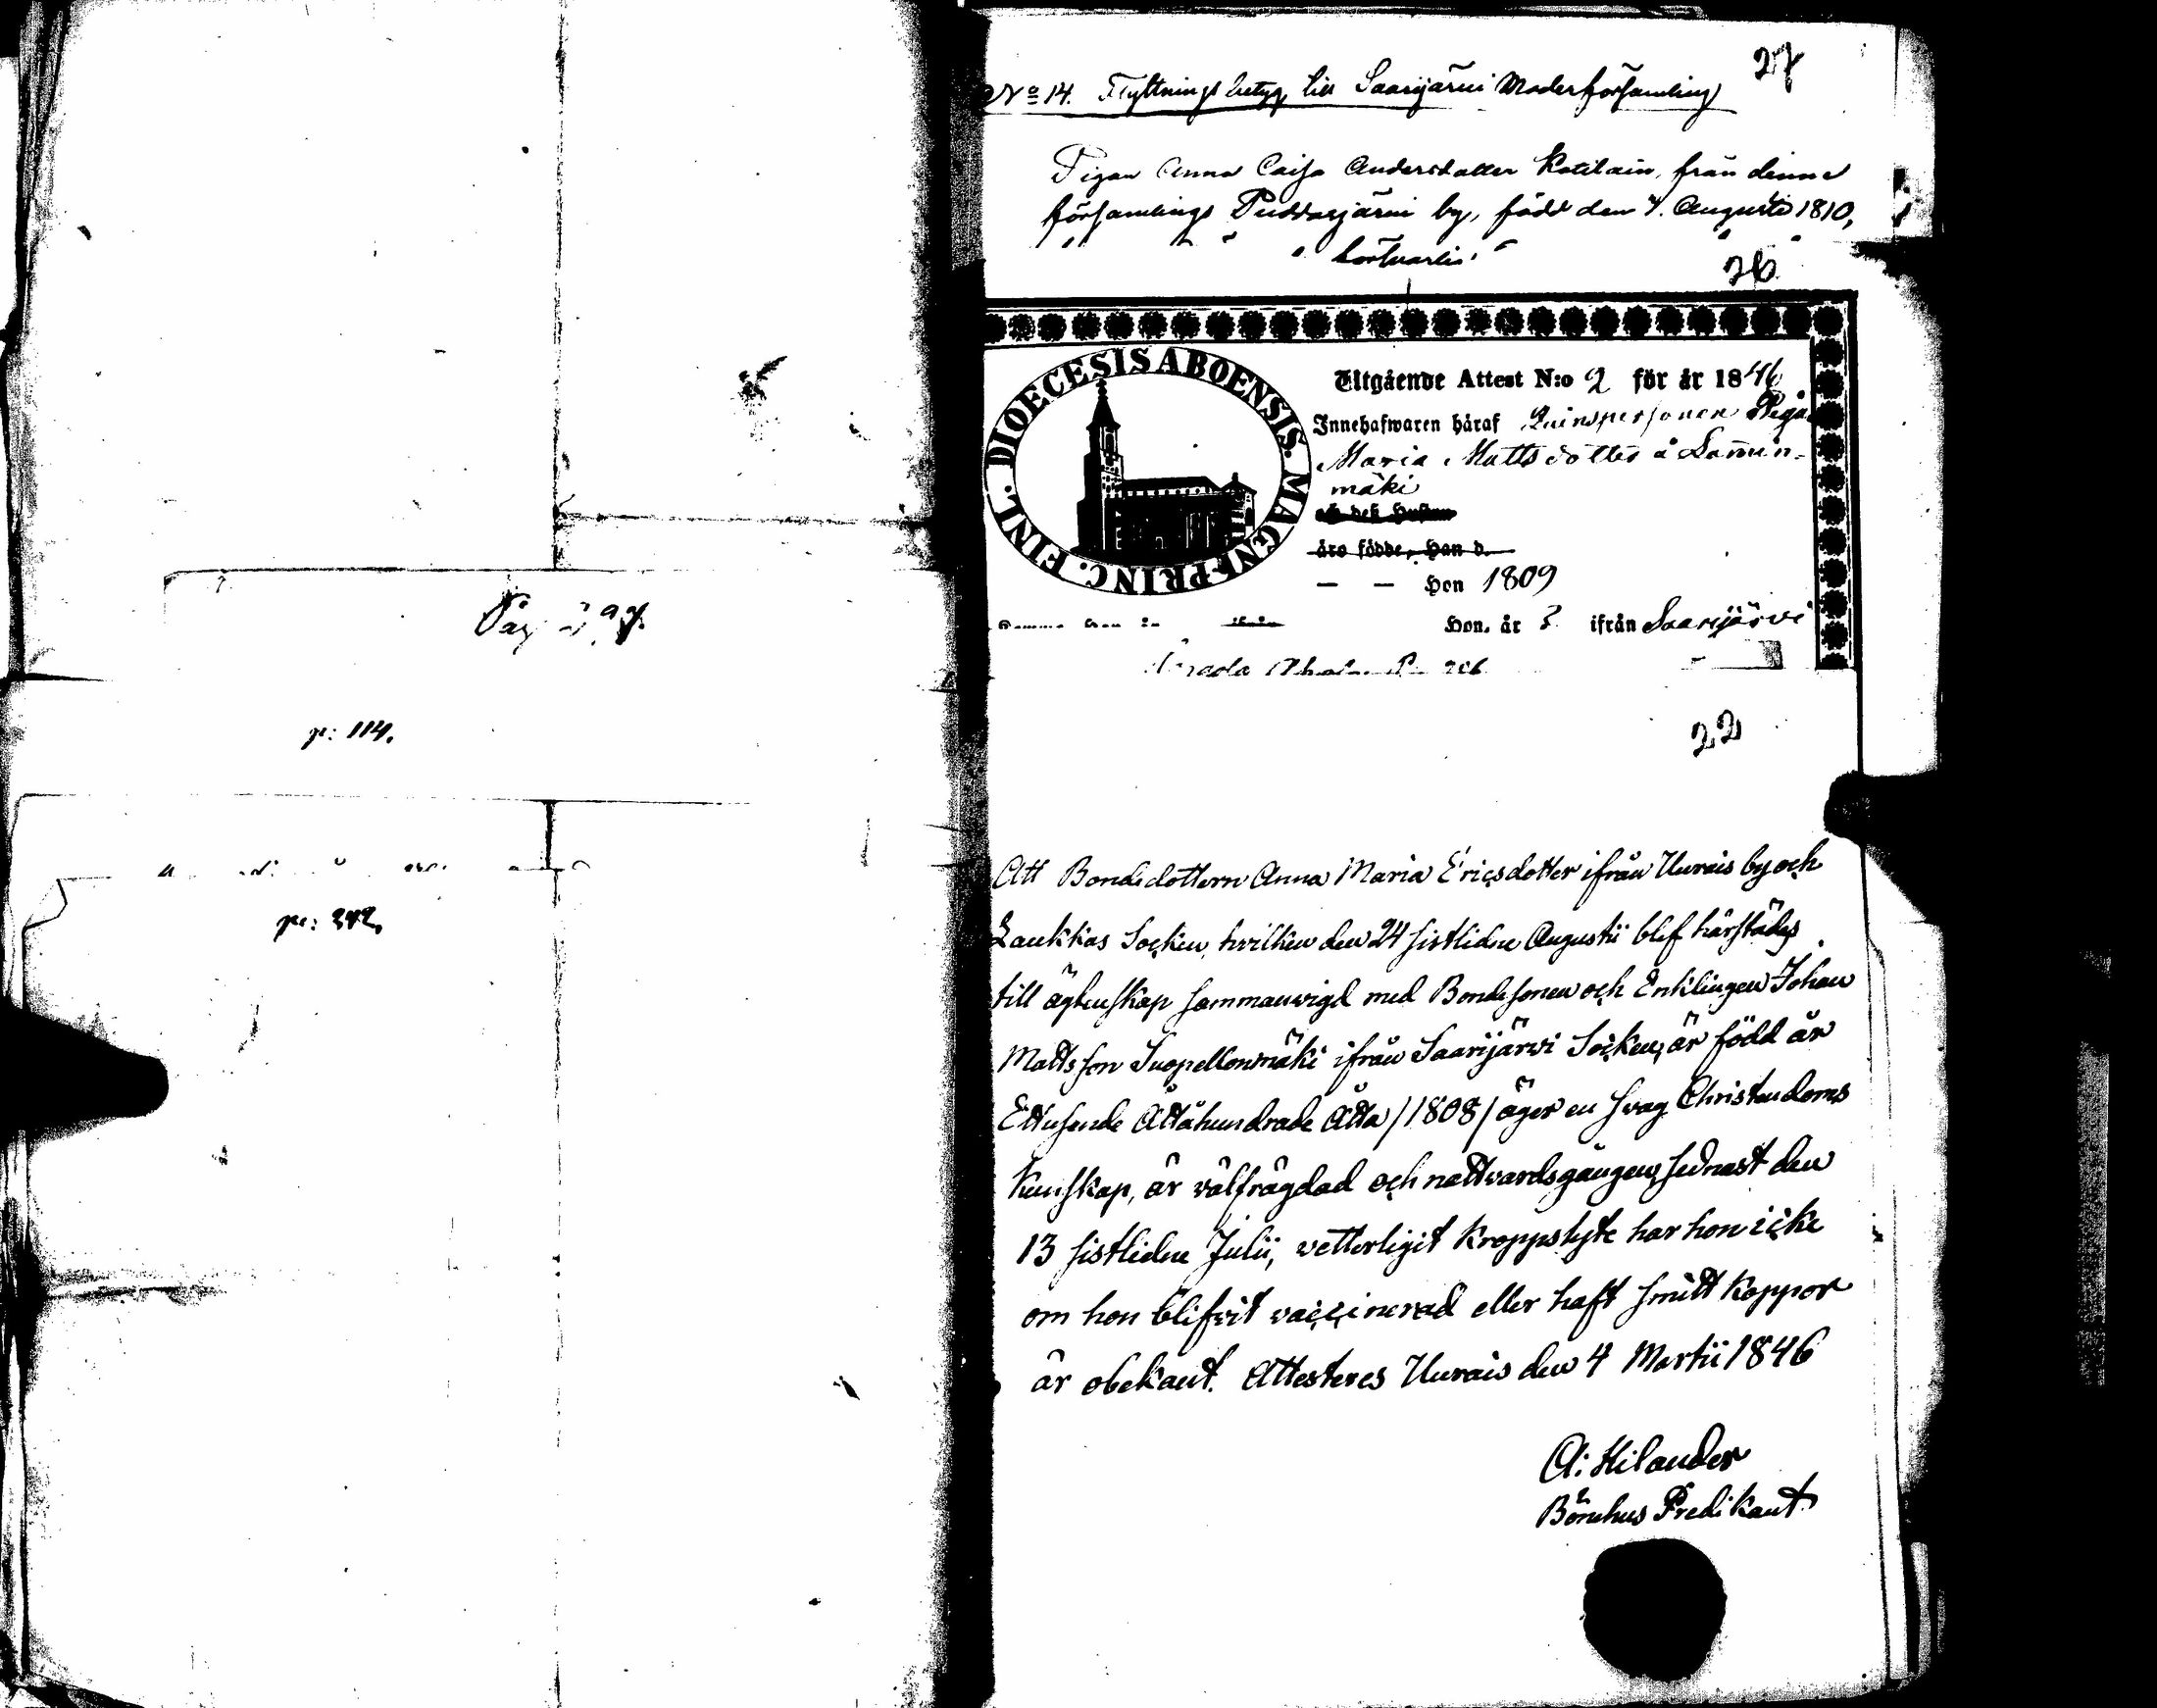 Pag 297.
p: 114.
pr: 242.
27
No 14. Flyttnings betyg till Saarijärvi Moderförsamling
Pigan Anna Caisa Andersdotter Kotilain, från denna
församlings Pudasjärvi by, född den 7. Augusti 1810,
26
DIOECESIS ABOENSIS. MAGNI PRINC. FINL.
Utgående Attest N:o 2 för år 1846
Innehafwaren häraf Qvinspersonen Pigan
Maria Mattsdotter å Lamin-
mäki
och deß Hustru
äro födde, Han d.
— — Hon 1809
Hon. år ifrån Saarijärvi
22
Att Bondedottern Anna Maria Ericsdotter ifrån Uurais by och
Laukkas Socken, hvilken den 24 sistlidne Augustii blef härstädes
till ägtenskap sammanvigd med Bondesonen och Enklingen Johan
Mattsson Suopellonmäki ifrån Saarijärvi Socken, är född år
Ettusende Åttahundrade Åtta /1808/ äger en svag Christendoms
Kunskap, är välfrägdad och nattvardsgången sednast den
13 sistlidne Julii, vetterligit Kroppslyte har hon icke
om hon blifvit vaccinerad eller haft smitt Koppor
är obekant. Attesteres Uurais den 4 Martii 1846
A: Hilander
Bönehus Predikant.